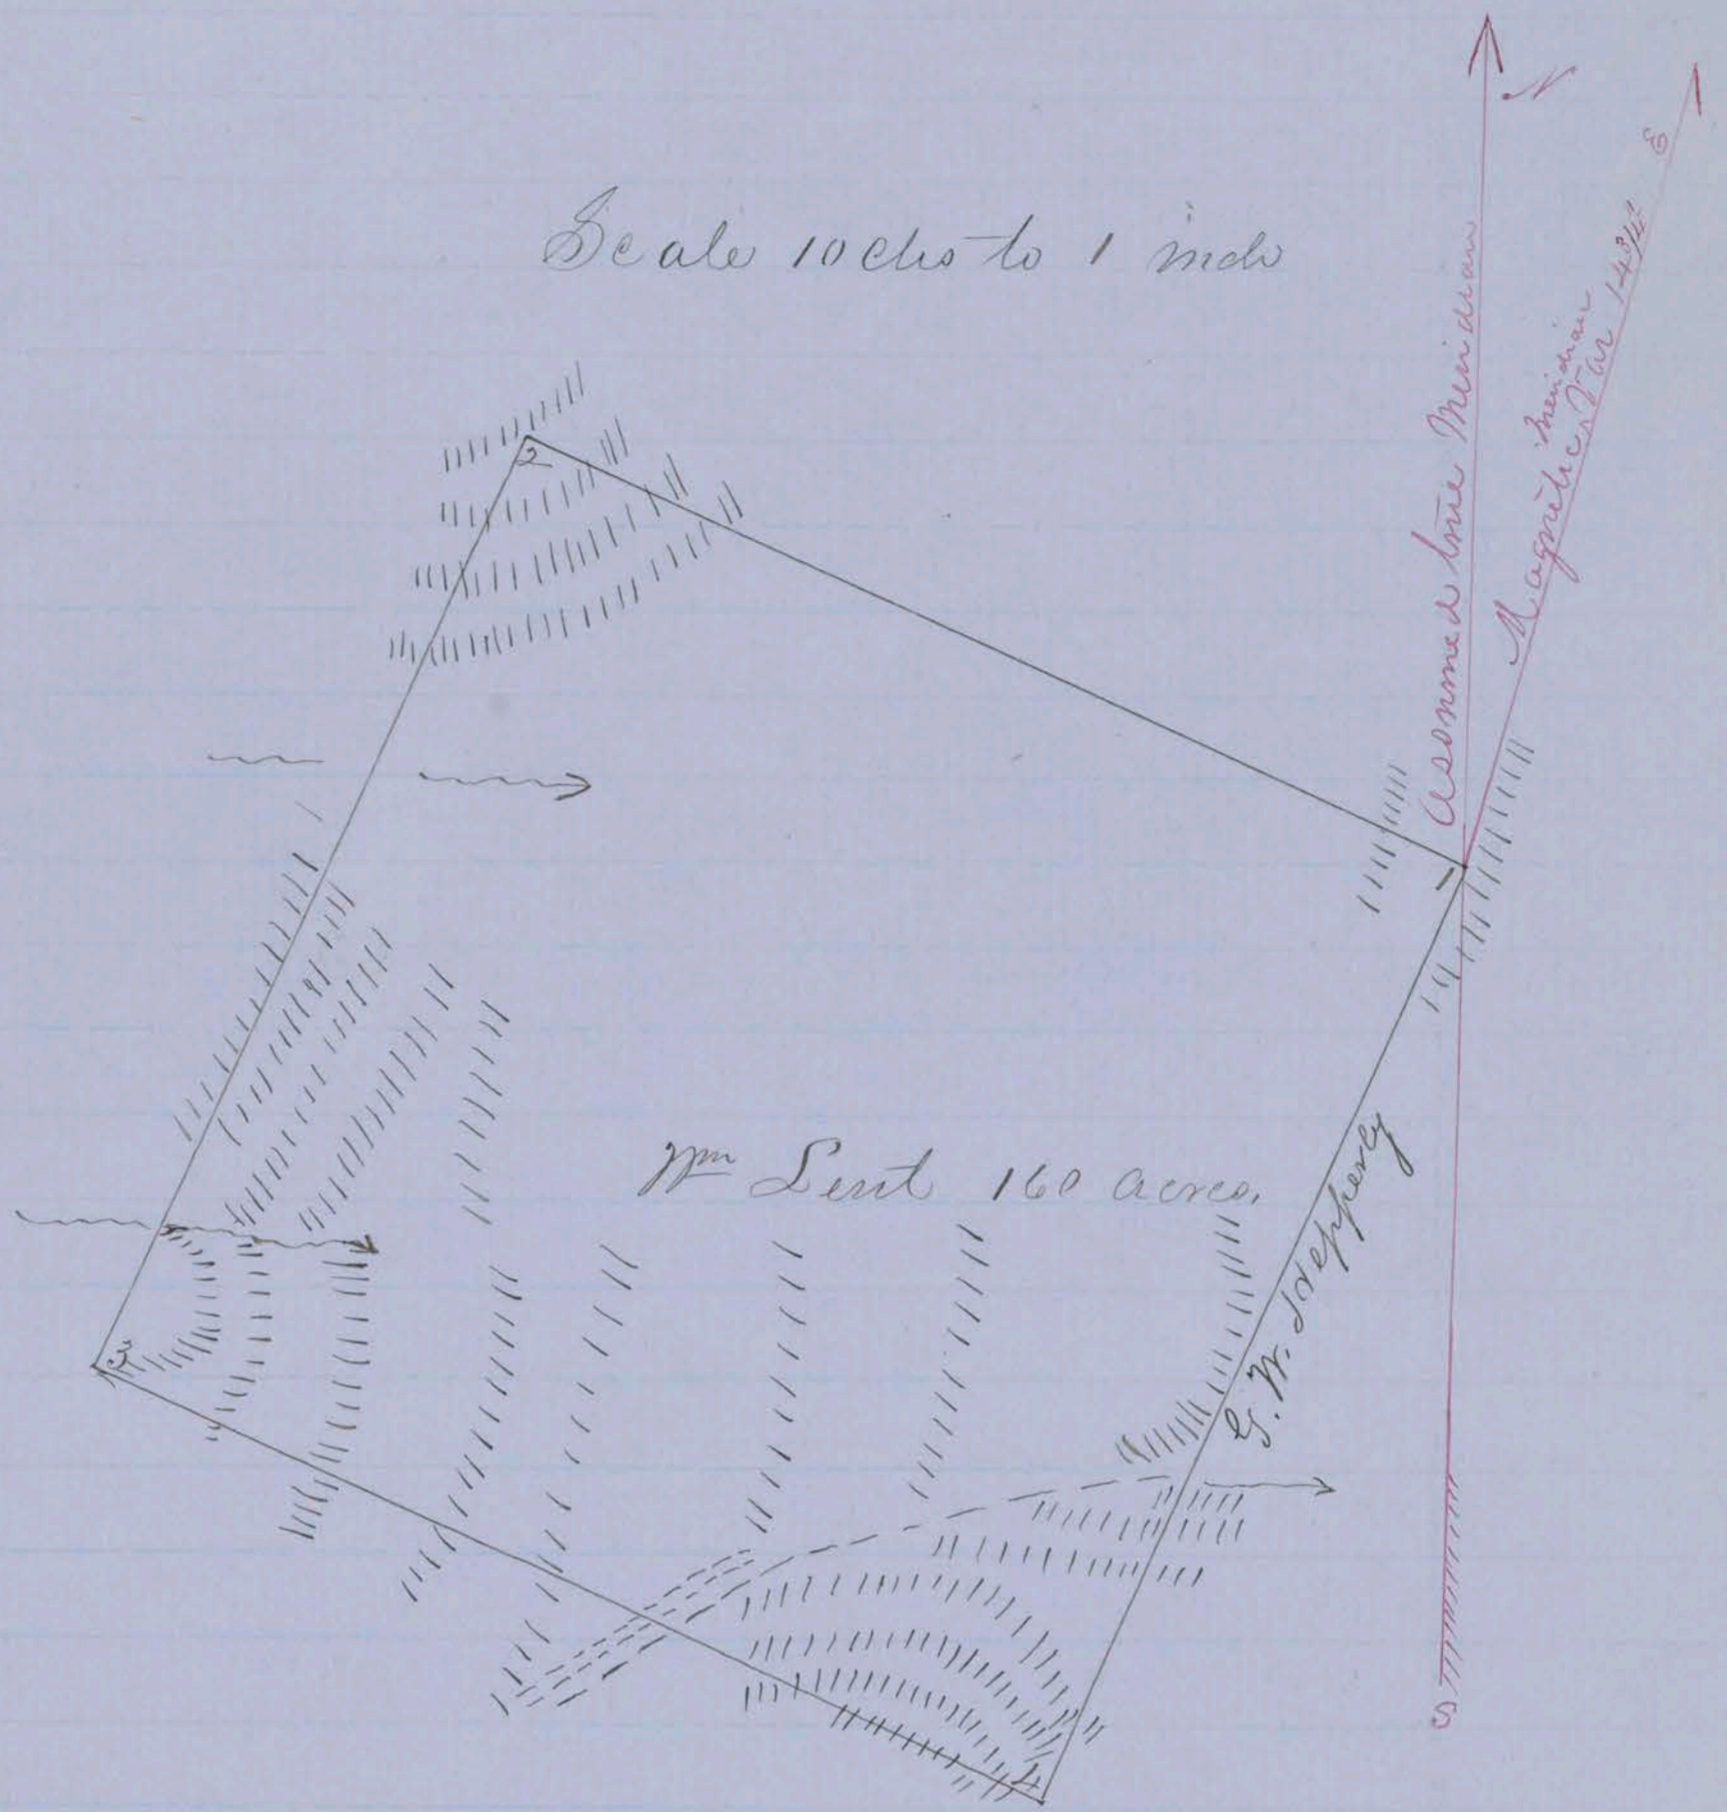 N
E
Scale 10 chs to 1 inch
Assumed true Meridian
Magnetic Meridian Var 14 3/4°
2
1
Wm Lent 160 acres.
G. W.
3
4
S